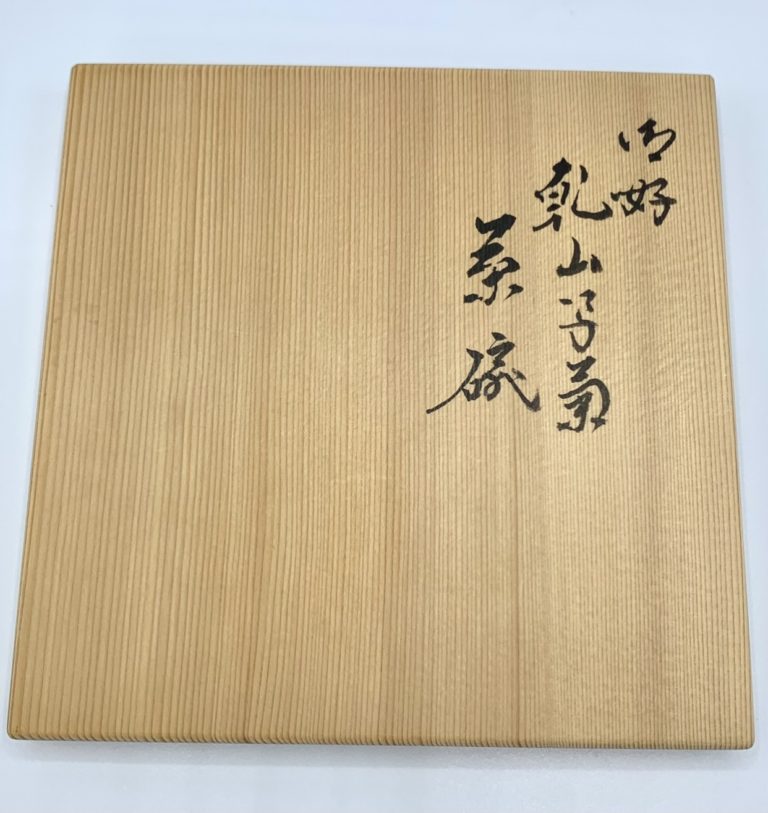 御好
乾山写菊
茶碗